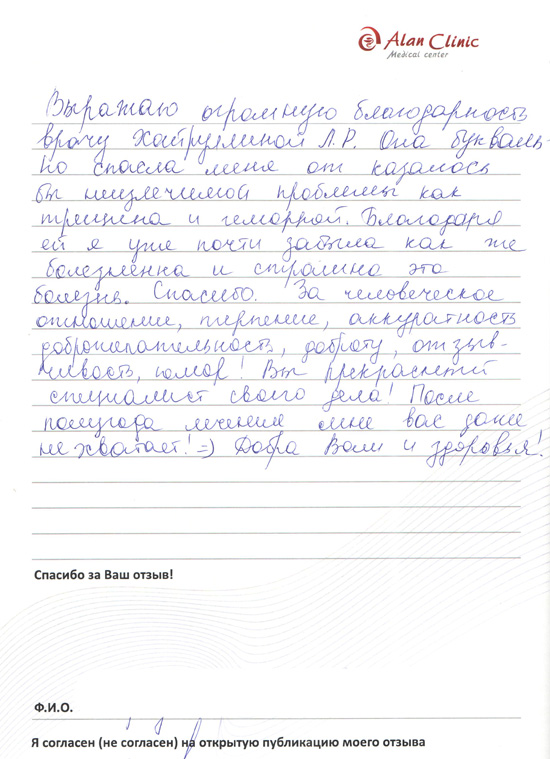 Alan Clinic
Medical center
Выражаю огромную благодарность
врачу Хайруллиной Л.Р. Она букваль-
но спасла меня от казалось
бы неизлечимой проблемы как
трещина и геморрой. Благодаря
ей я уже почти забыла как же
болезненна и страшна эта
болезнь. Спасибо. За человеческое
отношение, терпение, аккуратность
доброжелательность, доброту, отзыв-
чивость, юмор! Вы прекрасный
специалист своего дела! После
полугода лечения мне вас даже
не хватает! =) Добра Вам и здоровья!
Спасибо за Ваш отзыв!
Ф.И.О.
Я согласен (не согласен) на открытую публикацию моего отзыва